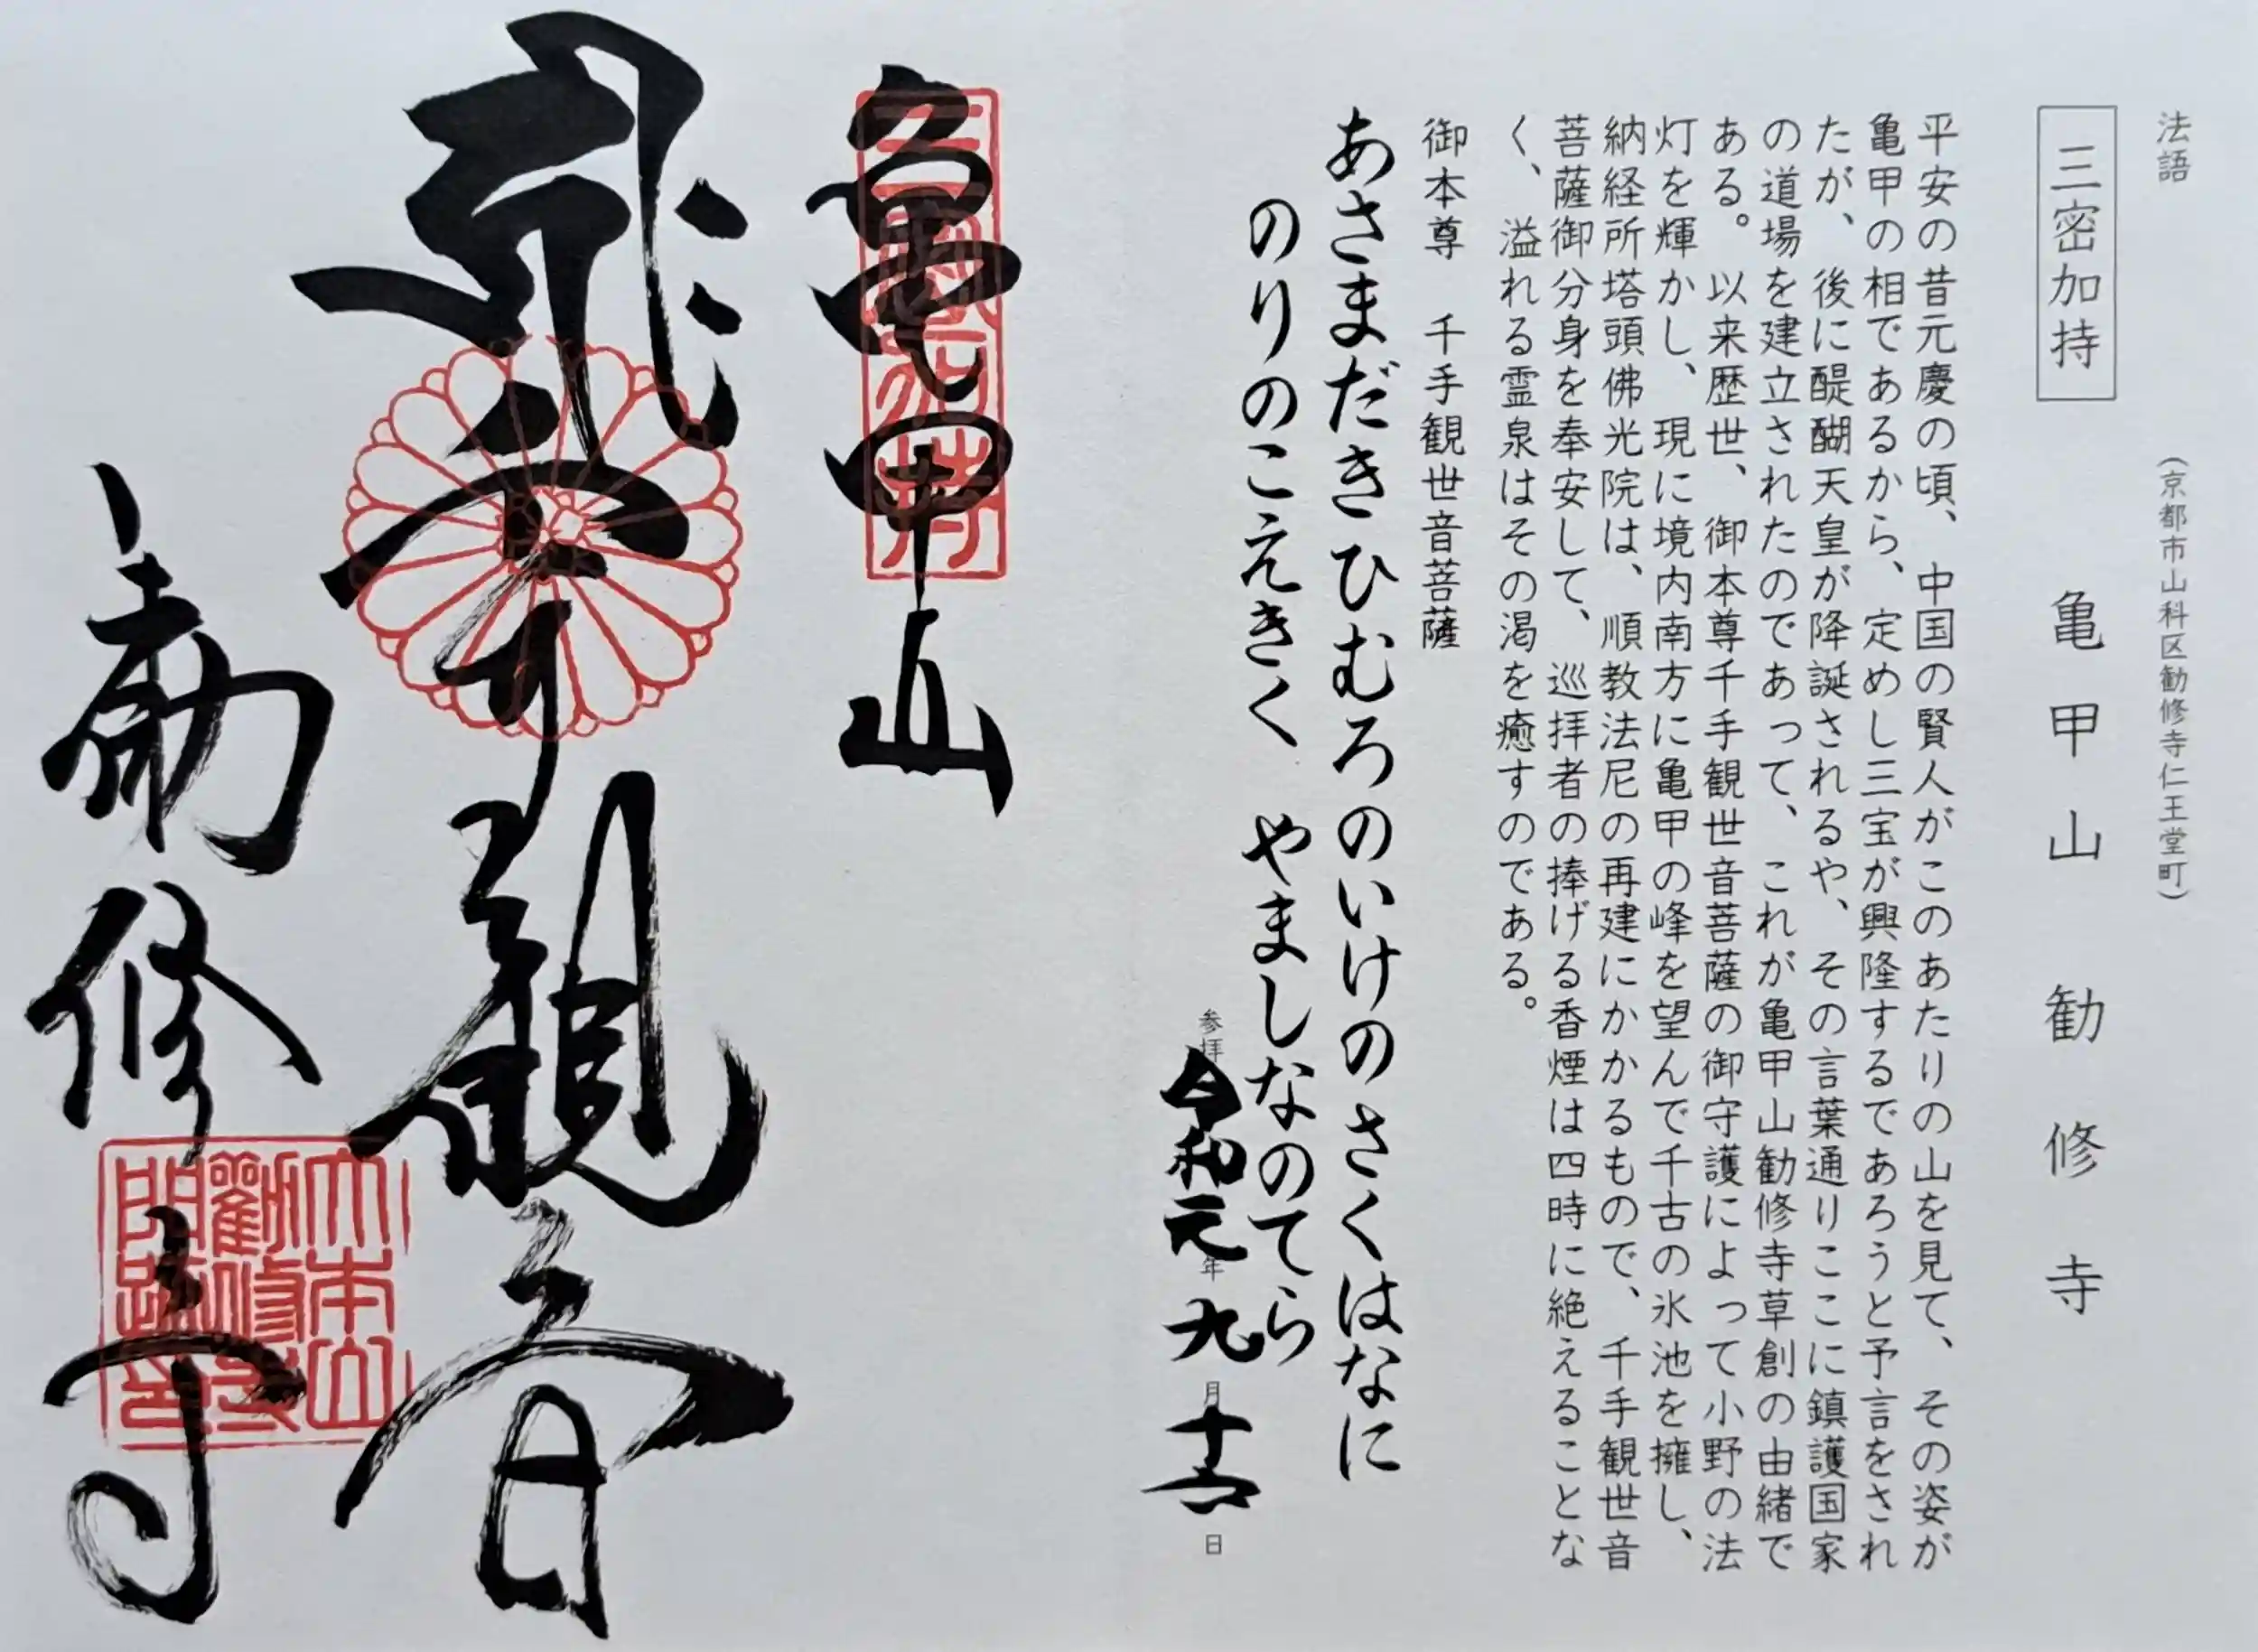 法語
(京都市山科区勧修寺仁王堂町)
三密加持
亀甲山 勧修寺
平安の昔元慶の頃、中国の賢人がこのあたりの山を見て、その姿が
亀甲の相であるから、定めし三宝が興隆するであろうと予言をされ
たが、後に醍醐天皇が降誕されるや、その言葉通りここに鎮護国家
の道場を建立されたのであって、これが亀甲山勧修寺草創の由緒で
ある。以来歴世、御本尊千手観世音菩薩の御守護によって小野の法
灯を輝かし、現に境内南方に亀甲の峰を望んで千古の氷池を擁し、
納経所塔頭佛光院は、順教法尼の再建にかかるもので、千手観世音
菩薩御分身を奉安して、巡拝者の捧げる香煙は四時に絶えることな
く、溢れる霊泉はその渇を癒すのである。
御本尊 千手観世音菩薩
あさまだきひむろのいけのさくはなに
のりのこえきく やましなのてら
参拝 令和元年九月十六日
亀甲山
三密加持
千手観音
勧修寺
大本山
勸修寺
門跡印